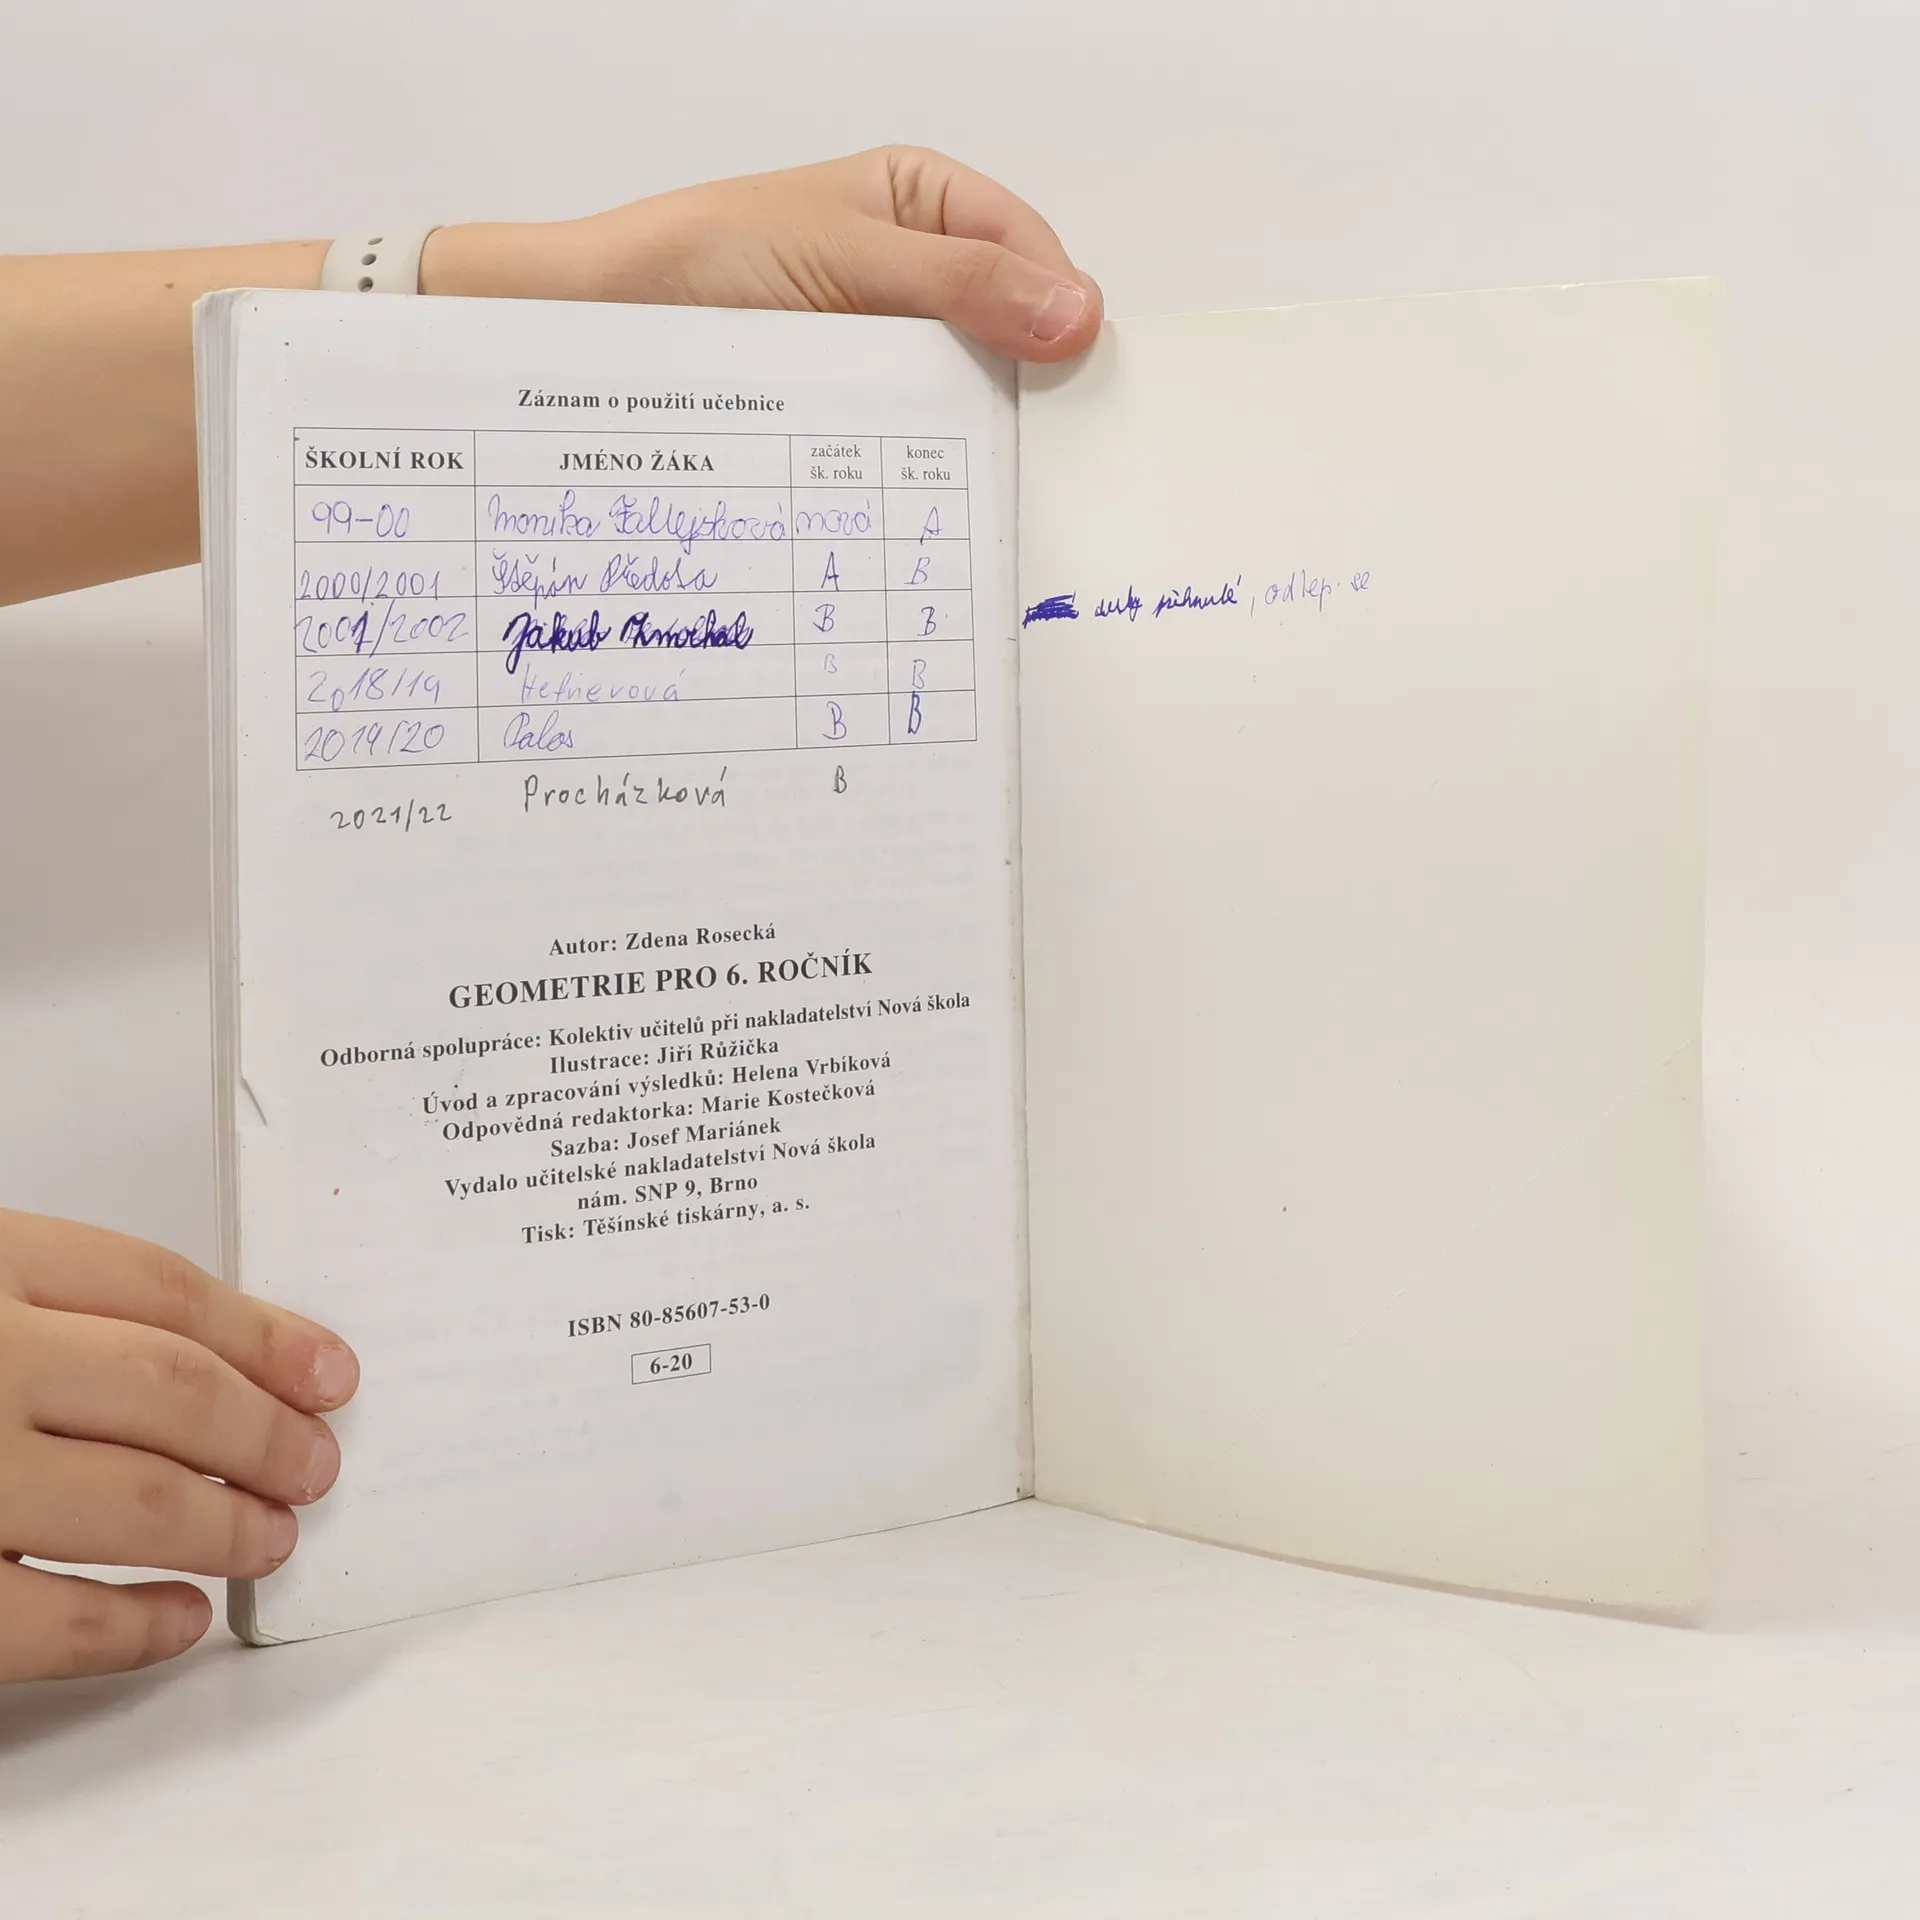 Záznam o použití učebnice
ŠKOLNÍ ROK JMÉNO ŽÁKA začátek šk. roku konec šk. roku
99-00 Monika nová A
2000/2001 Štěpán A B
2001/2002 Jakub B B
2018/19 B B
2019/20 Palos B B
2021/22 Procházková B
Autor: Zdena Rosecká
GEOMETRIE PRO 6. ROČNÍK
Odborná spolupráce: Kolektiv učitelů při nakladatelství Nová škola
Ilustrace: Jiří Růžička
Úvod a zpracování výsledků: Helena Vrbíková
Odpovědná redaktorka: Marie Kostečková
Sazba: Josef Mariánek
Vydalo učitelské nakladatelství Nová škola
nám. SNP 9, Brno
Tisk: Těšínské tiskárny, a. s.
ISBN 80-85607-53-0
6-20
desky , odlep. se